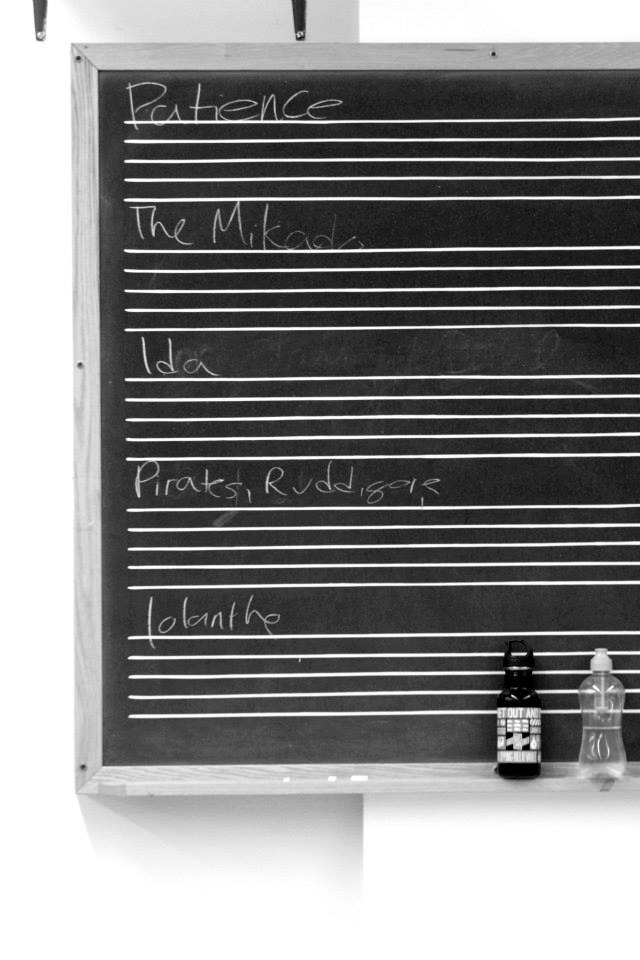 Patience
The Mikado
Ida
Pirates, Ruddigore
Iolanthe
ET OUT AND